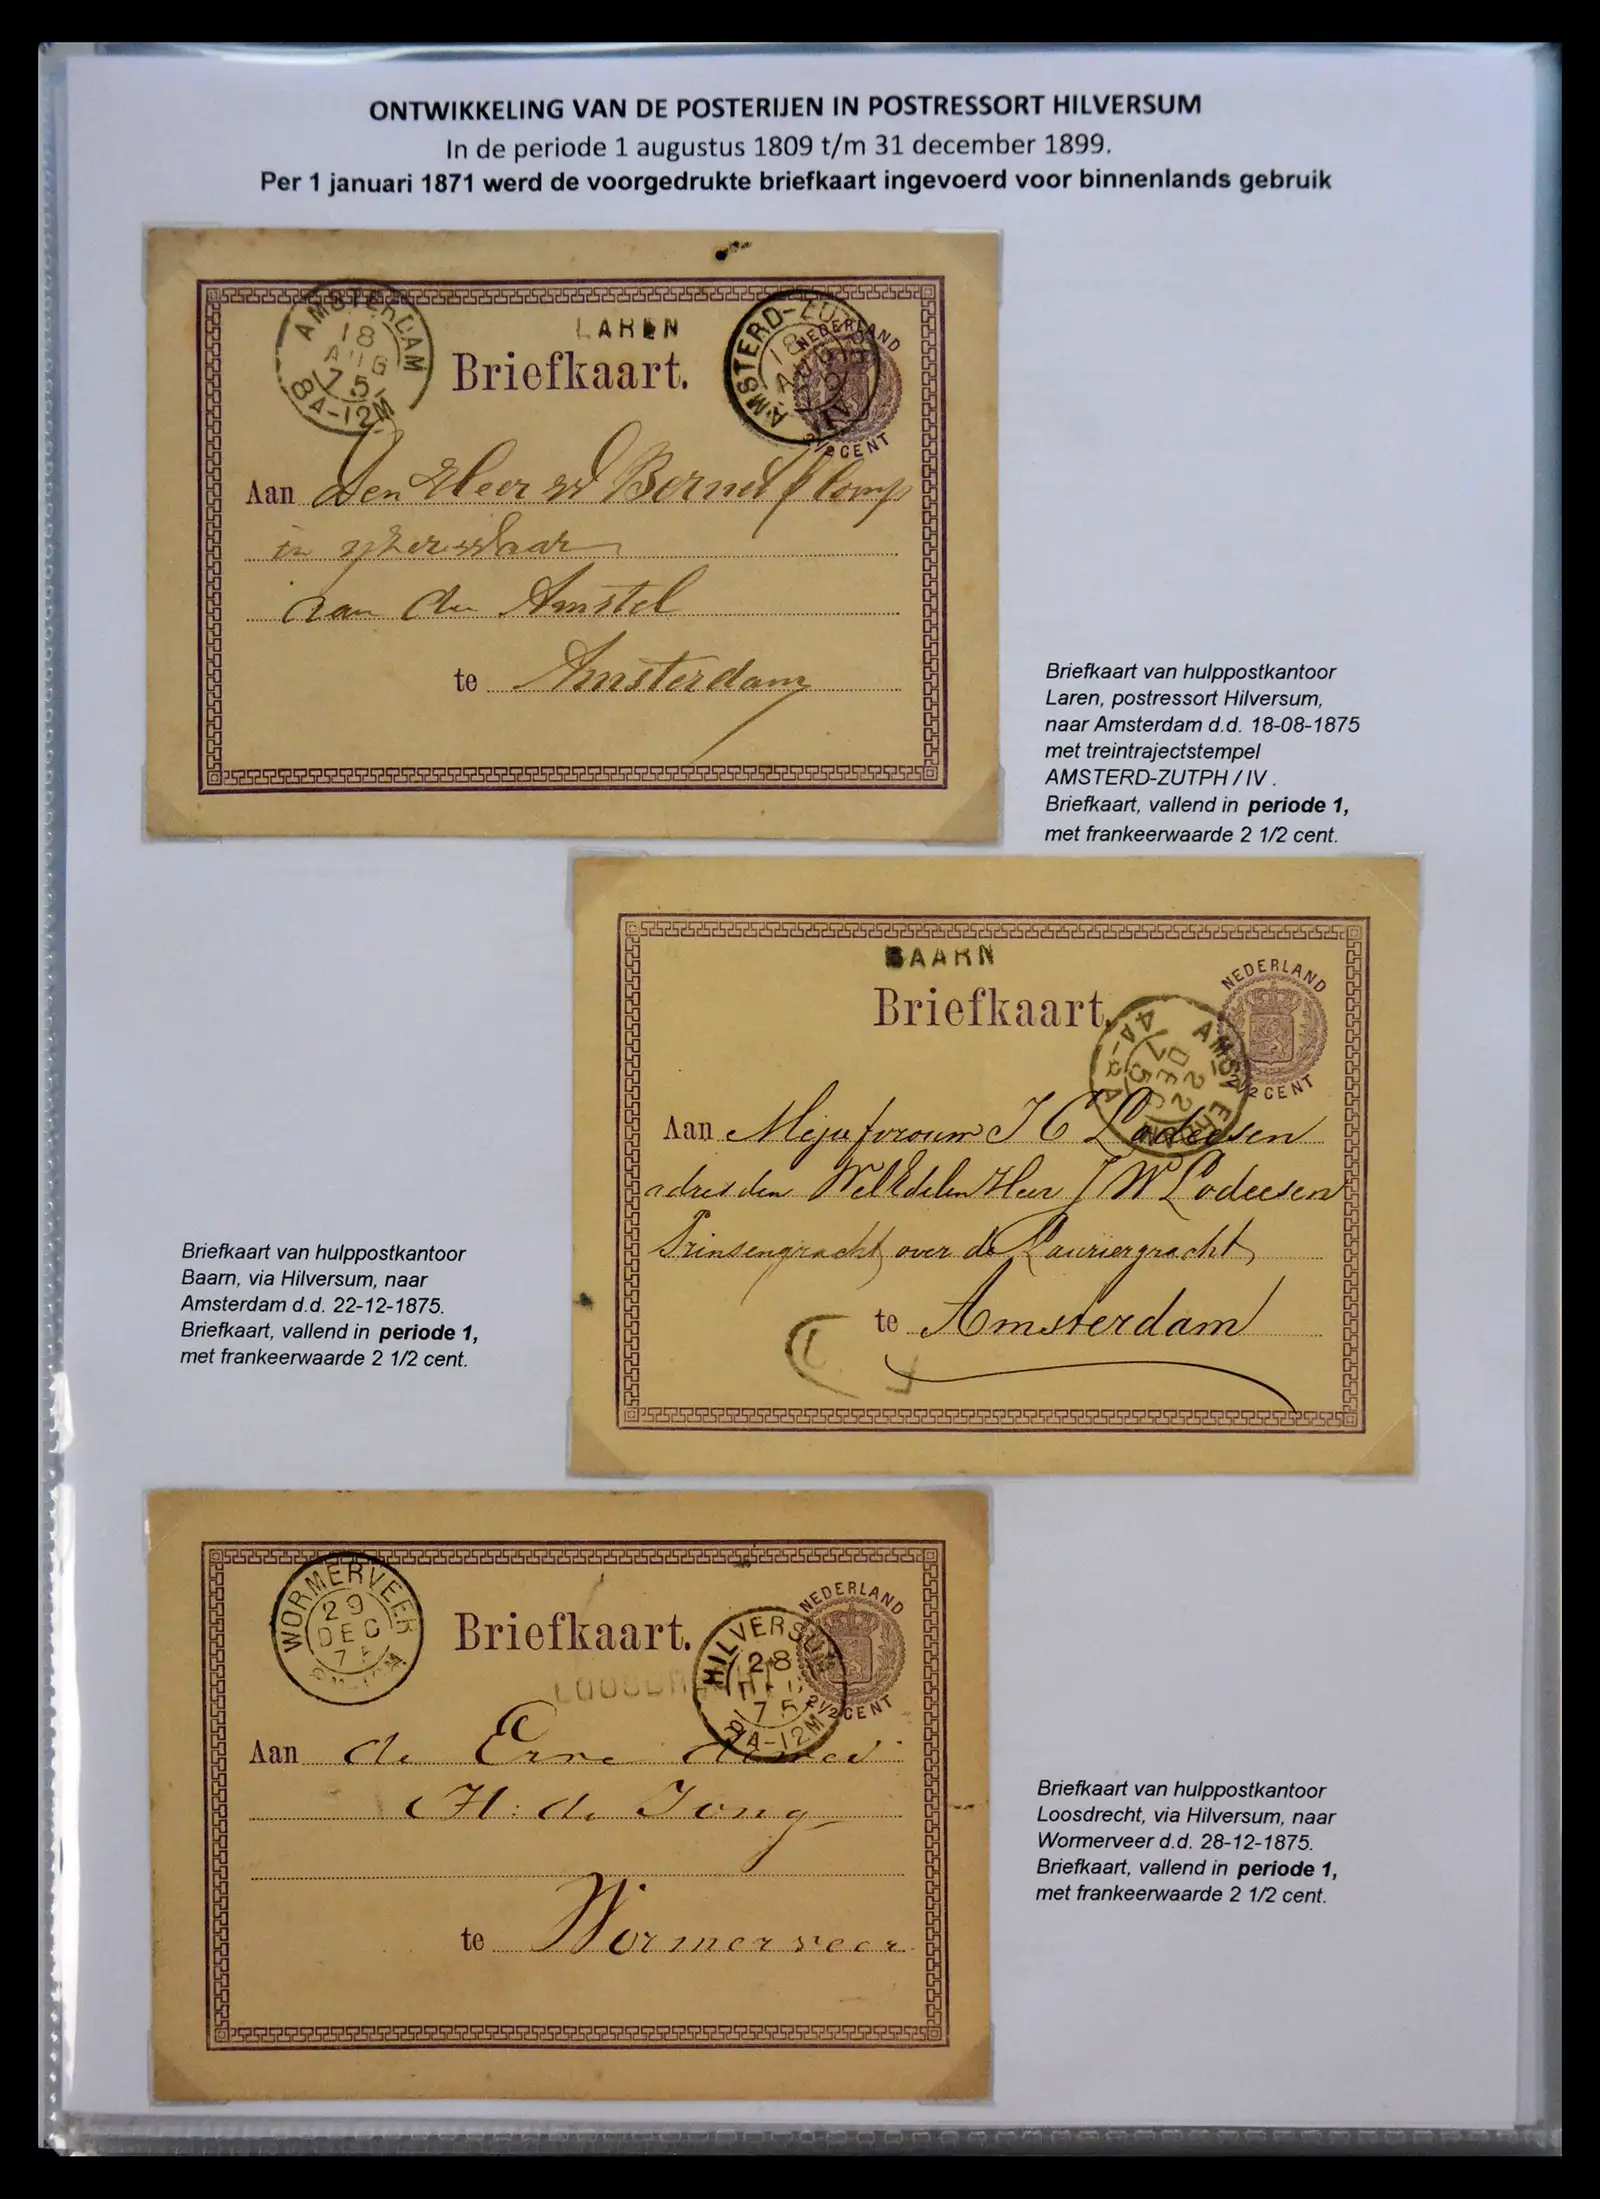 ONTWIKKELING VAN DE POSTERIJEN IN POSTRESSORT HILVERSUM
In de periode 1 augustus 1809 t/m 31 december 1899.
Per 1 januari 1871 werd de voorgedrukte briefkaart ingevoerd voor binnenlands gebruik
AMSTERDAM
18
AUG
75
8A-12M
LAREN
Briefkaart.
AMSTERD-ZU
18
AUG
IV
NEDERLAND
2½ CENT
Aan Den Heer
aan de Amstel
te Amsterdam
Briefkaart van hulppostkantoor
Laren, postressort Hilversum,
naar Amsterdam d.d. 18-08-1875
met treintrajectstempel
AMSTERD-ZUTPH / IV .
Briefkaart, vallend in periode 1,
met frankeerwaarde 2 1/2 cent.
BAARN
Briefkaart.
NEDERLAND
2½ CENT
AMSTERDAM
22
DEC
75
4A-8A
Aan Mejufvrouw J C Lodeesen
adres den WelEdelen Heer J W Lodeesen
Prinsengracht over de Lauriergracht
te Amsterdam
Briefkaart van hulppostkantoor
Baarn, via Hilversum, naar
Amsterdam d.d. 22-12-1875.
Briefkaart, vallend in periode 1,
met frankeerwaarde 2 1/2 cent.
WORMERVEER
29
DEC
75
Briefkaart.
LOOSDRECHT
HILVERSUM
28
75
8A-12M
NEDERLAND
2½ CENT
Aan de Erve
H: de Jong
te Wormerveer
Briefkaart van hulppostkantoor
Loosdrecht, via Hilversum, naar
Wormerveer d.d. 28-12-1875.
Briefkaart, vallend in periode 1,
met frankeerwaarde 2 1/2 cent.